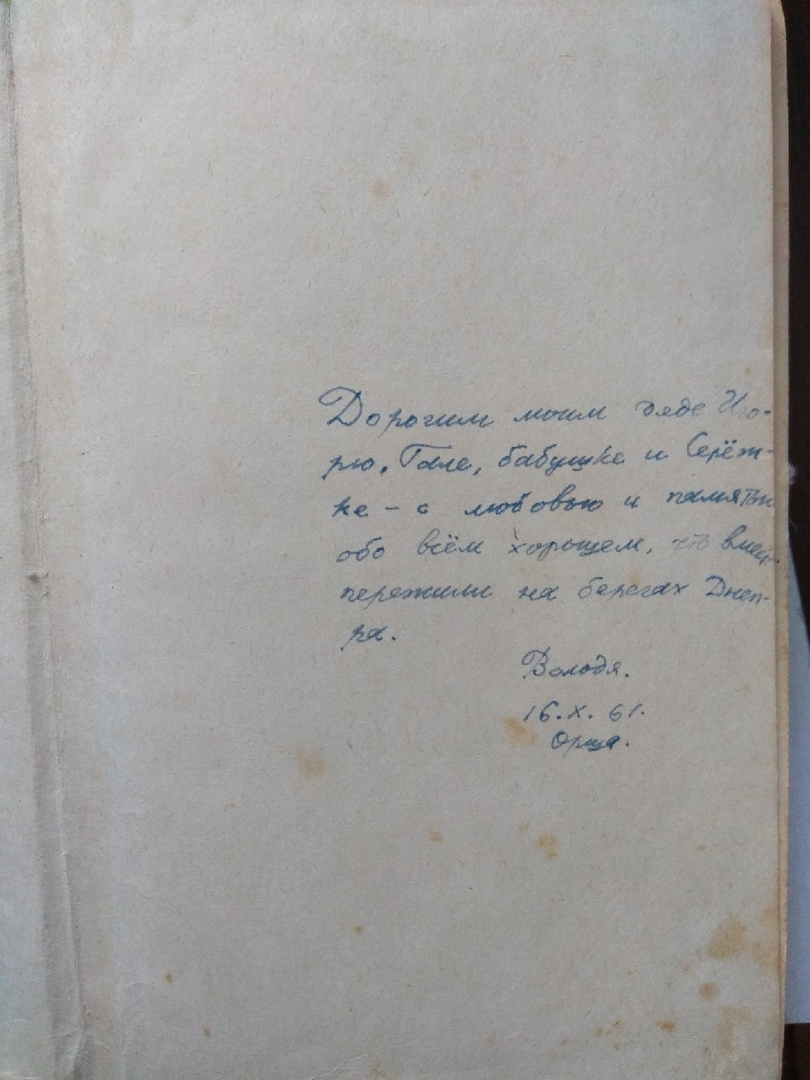 Дорогим моим дяде Иго-
рю, Гале, бабушке и Серёж-
ке – с любовью и памятью
обо всём хорошем, что вмес.
пережили на берегах Днеп-
ра.
Володя.
16.X.61.
Орша.